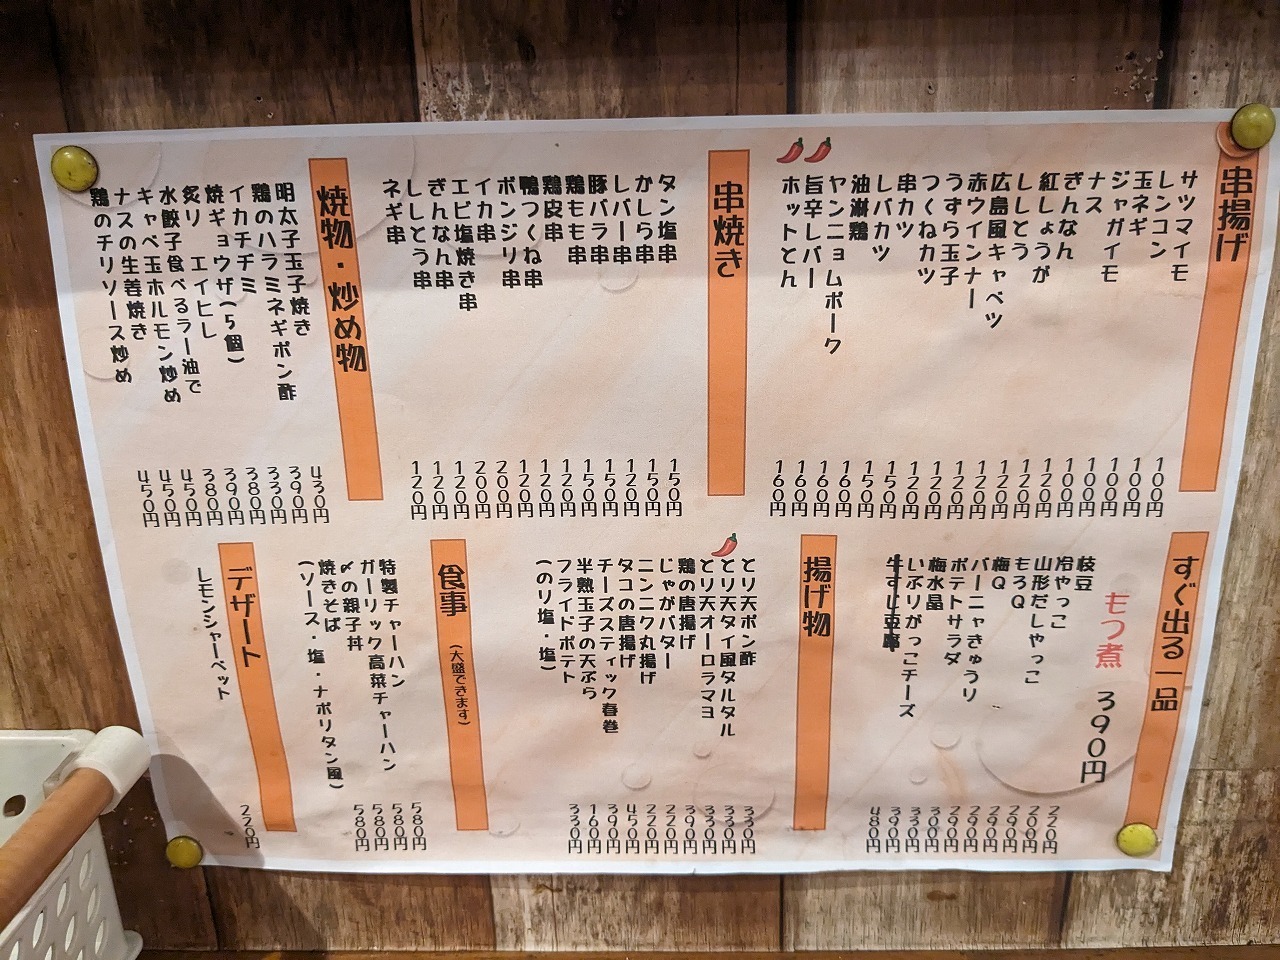 串揚げ
サツマイモ 100円
レンコン 100円
玉ネギ 100円
ジャガイモ 100円
ナス 100円
ぎんなん 120円
紅しょうが 120円
ししとう 120円
広島風キャベツ 120円
赤ウインナー 120円
うずら玉子 120円
つくねカツ 120円
串カツ 150円
レバカツ 150円
油淋鶏 160円
ヤンニョムポーク 160円
旨辛レバー 160円
ホットとん 160円
串焼き
タン塩串 150円
かしら串 150円
レバー串 120円
豚バラ串 150円
鶏もも串 150円
鶏皮串 120円
鴨つくね串 120円
ボンジリ串 120円
イカ串 200円
エビ塩焼き串 200円
ぎんなん串 120円
ししとう串 120円
ネギ串 120円
焼物・炒め物
明太子玉子焼き 430円
鶏のハラミネギポン酢 390円
イカチヂミ 330円
焼ギョウザ(5個) 380円
炙り エイヒレ 390円
水餃子食べるラー油で 380円
キャベ玉ホルモン炒め 450円
ナスの生姜焼き 450円
鶏のチリソース炒め 450円
すぐ出る一品
もつ煮 390円
枝豆 220円
冷やっこ 260円
山形だしやっこ 290円
もろQ 290円
梅Q 290円
バーニャきゅうり 290円
ポテトサラダ 330円
梅水晶 330円
いぶりがっこチーズ 390円
牛すじ豆腐 480円
揚げ物
とり天ポン酢 330円
とり天タイ風タルタル 330円
とり天オーロラマヨ 330円
鶏の唐揚げ 390円
じゃがバター 270円
ニンニク丸揚げ 220円
タコの唐揚げ 450円
チーズスティック春巻 390円
半熟玉子の天ぷら 160円
フライドポテト 330円
(のり塩・塩)
食事 (大盛できます)
特製チャーハン 580円
ガーリック高菜チャーハン 580円
〆の親子丼 580円
焼きそば 580円
(ソース・塩・ナポリタン風)
デザート
レモンシャーベット 220円